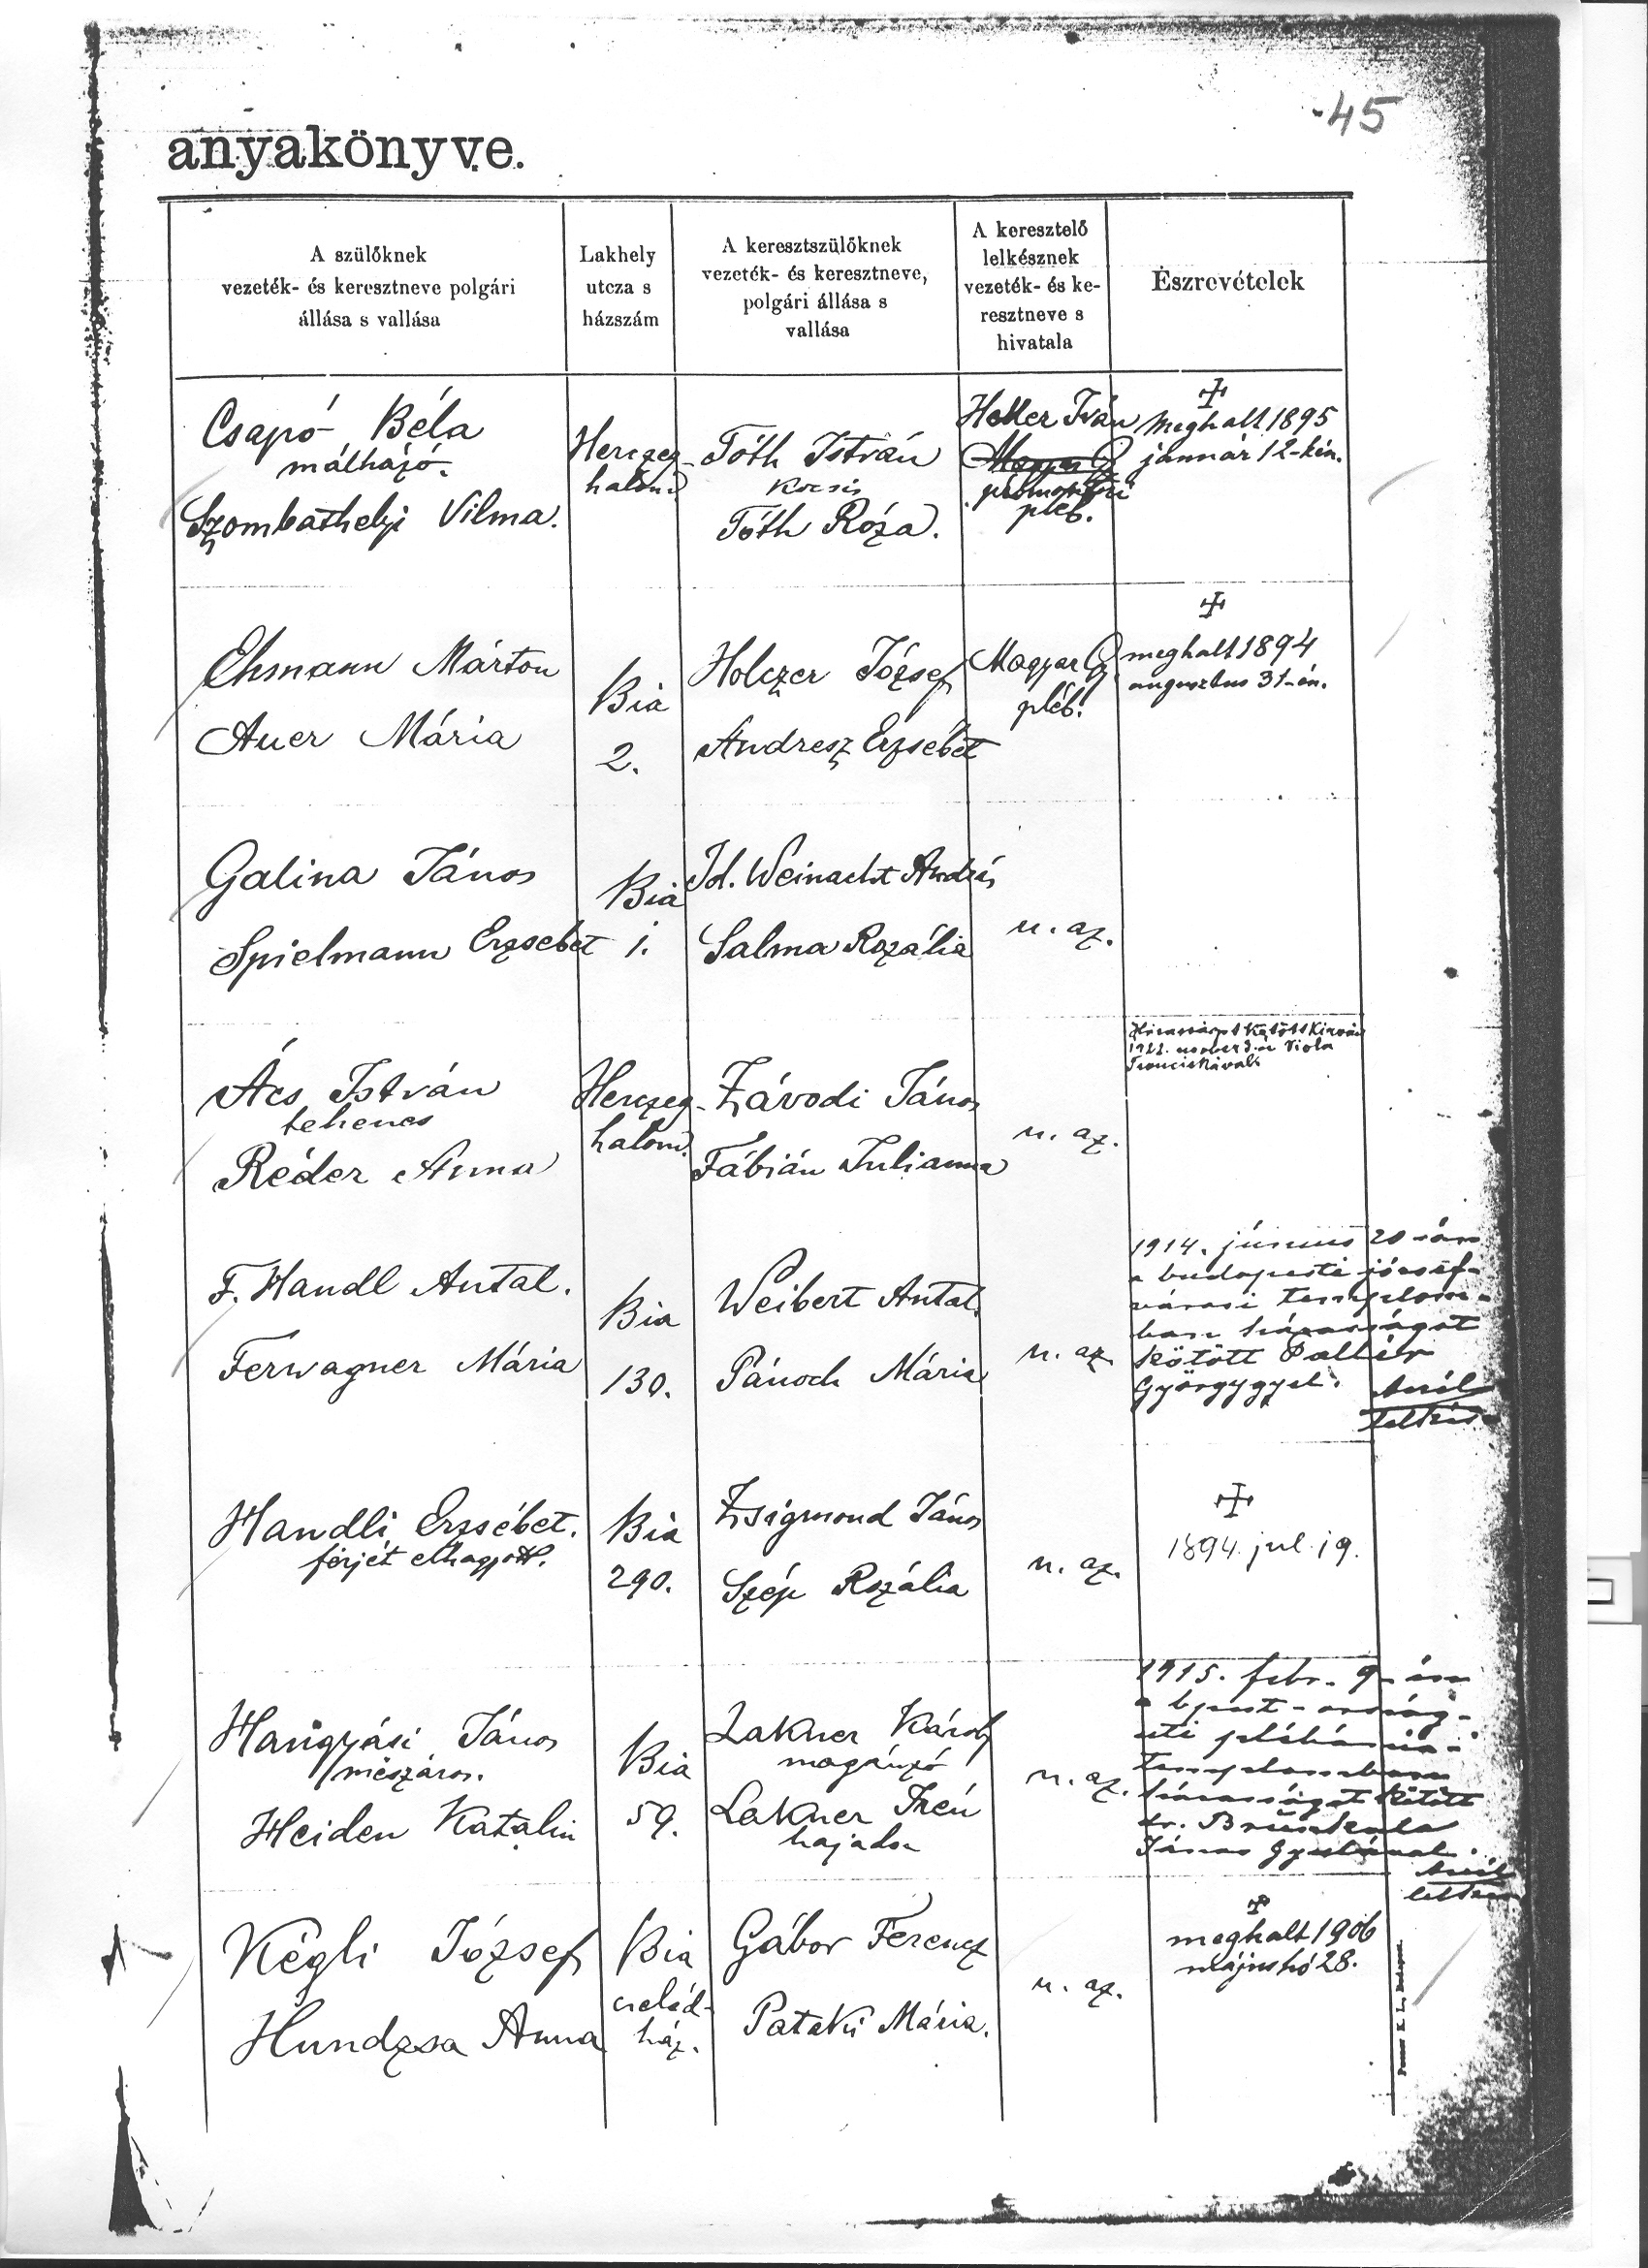 45
anyakönyve.
A szülőknek
vezeték- és keresztneve polgári
állása s vallása
Lakhely
utcza s
házszám
A keresztszülőknek
vezeték- és keresztneve,
polgári állása s
vallása
A keresztelő
lelkésznek
vezeték- és ke-
resztneve s
hivatala
Észrevételek
Csapó Béla
málházó.
Szombathelyi Vilma.
Herczeg-
halom
Tóth István
kocsis
Tóth Róza.
Heller Iván
Magyar G
promontori
pléb.
meghalt 1895
január 12-kén.
Ehmann Márton
Auer Mária
Bia
2.
Holczer József
Andresz Erzsébet
Magyar G.
pléb.
meghalt 1894
augusztus 31-én.
Galina János
Spielmann Erzsebet
Bia
1.
Id. Weinacht András
Salma Rozália
u. az.
Ács István
tehenes
Réder Anna
Herczeg-
halom.
Závodi János
Fábián Julianna
u. az.
Házasságot kötött
1922. Viola
Franciskával.
F. Handl Antal.
Ferwagner Mária
Bia
130.
Weibert Antal.
Pánoch Mária
u. az.
1914. június 20-án
a budapesti józsef-
városi templom-
ban házasságot
kötött Pallér
Györgygyel.
Handli Erzsébet.
férjét elhagyott.
Bia
290.
Zsigmond János
Szép Rozália
u. az.
1894. jul. 19.
Hangyási János
mészáros.
Heiden Katalin
Bia
59.
Lakner Károly
magánzó
Lakner Irén
hajadon
u. az.
1915. febr. 9-én
a bpest-ország-
uti plébánia-
templomban
házasságot kötött
dr.
János Gyulával.
Kégli József
Hundzsa Anna
Bia
cseléd-
ház.
Gábor Ferencz
Pataki Mária.
u. az.
meghalt 1906
május hó 28.